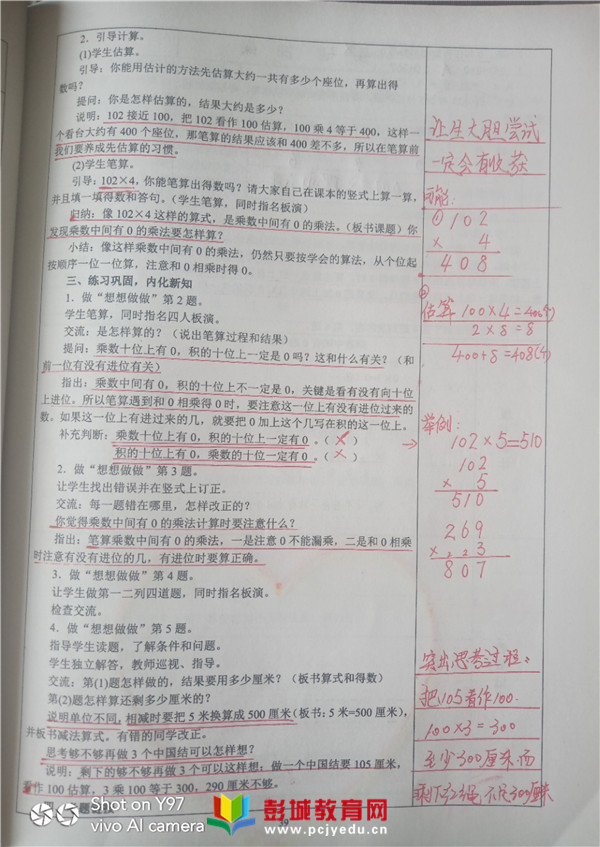 2．引导计算。
(1)学生估算。
引导：你能用估计的方法先估算大约一共有多少个座位，再算出得
数吗？
提问：你是怎样估算的，结果大约是多少？
说明：102 接近 100，把 102 看作 100 估算，100 乘 4 等于 400，这样一
个看台大约有 400 个座位，那笔算的结果应该和 400 差不多，所以在笔算前
我们要养成先估算的习惯。
(2)学生笔算。
引导：102×4，你能笔算出得数吗？请大家自己在课本的竖式上算一算，
并且填一填得数和答句。（学生笔算，同时指名板演）
归纳：像 102×4 这样的算式，是乘数中间有 0 的乘法。（板书课题）你
发现乘数中间有 0 的乘法要怎样算？
小结：像这样乘数中间有 0 的乘法，仍然只要按学会的算法，从个位起
按顺序一位一位算，注意和 0 相乘时得 0。
三、练习巩固，内化新知
1．做“想想做做”第 2 题。
学生笔算，同时指名四人板演。
交流：是怎样算的？（说出笔算过程和结果）
提问：乘数十位上有 0，积的十位上一定是 0 吗？这和什么有关？（和
前一位有没有进位有关）
指出：乘数中间有 0，积的十位上不一定是 0，关键是看有没有向十位
上进位。所以笔算遇到和 0 相乘得 0 时，要注意这一位上有没有进位过来的
数。如果这一位上有进过来的几，就要把 0 加上这个几写在积的这一位上。
补充判断：乘数十位上有 0，积的十位上一定有 0 。（×）
积的十位上有 0，乘数的十位一定有 0 。（×）
2．做“想想做做”第 3 题。
让学生找出错误并在竖式上订正。
交流：每一题错在哪里，怎样改正的？
你觉得乘数中间有 0 的乘法计算时要注意什么？
指出：笔算乘数中间有 0 的乘法，一是注意 0 不能漏乘，二是和 0 相乘
时注意有没有进位的几，有进位时要算正确。
3．做“想想做做”第 4 题。
让学生做第一二列四道题，同时指名板演。
检查交流。
4．做“想想做做”第 5 题。
指导学生读题，了解条件和问题。
学生独立解答，教师巡视、指导。
交流：第(1)题怎样做的，结果要用多少厘米？（板书算式和得数）
第(2)题怎样算还剩多少厘米的？
说明单位不同，相减时要把 5 米换算成 500 厘米（板书：5 米=500 厘米），
并板书减法算式。有错的同学改正。
思考够不够再做 3 个中国结可以怎样想？
说明：剩下的够不够再做 3 个可以这样想：做一个中国结要 105 厘米，
看作 100 估算，3 乘 100 等于 300，290 厘米不够。
39
让生大胆尝试
一定会有收获
可能：
① 102
× 4
408
②
估算 100×4=400(个)
2×8=8
400+8=408(个)
举例：
→ 102×5=510
102
× 5
510
269
× 3
807
突出思考过程：
把105看作100.
100×3=300
至少300厘米，而
不足300厘米
Shot on Y97
vivo AI camera
彭城教育网
www.pcjyedu.cn